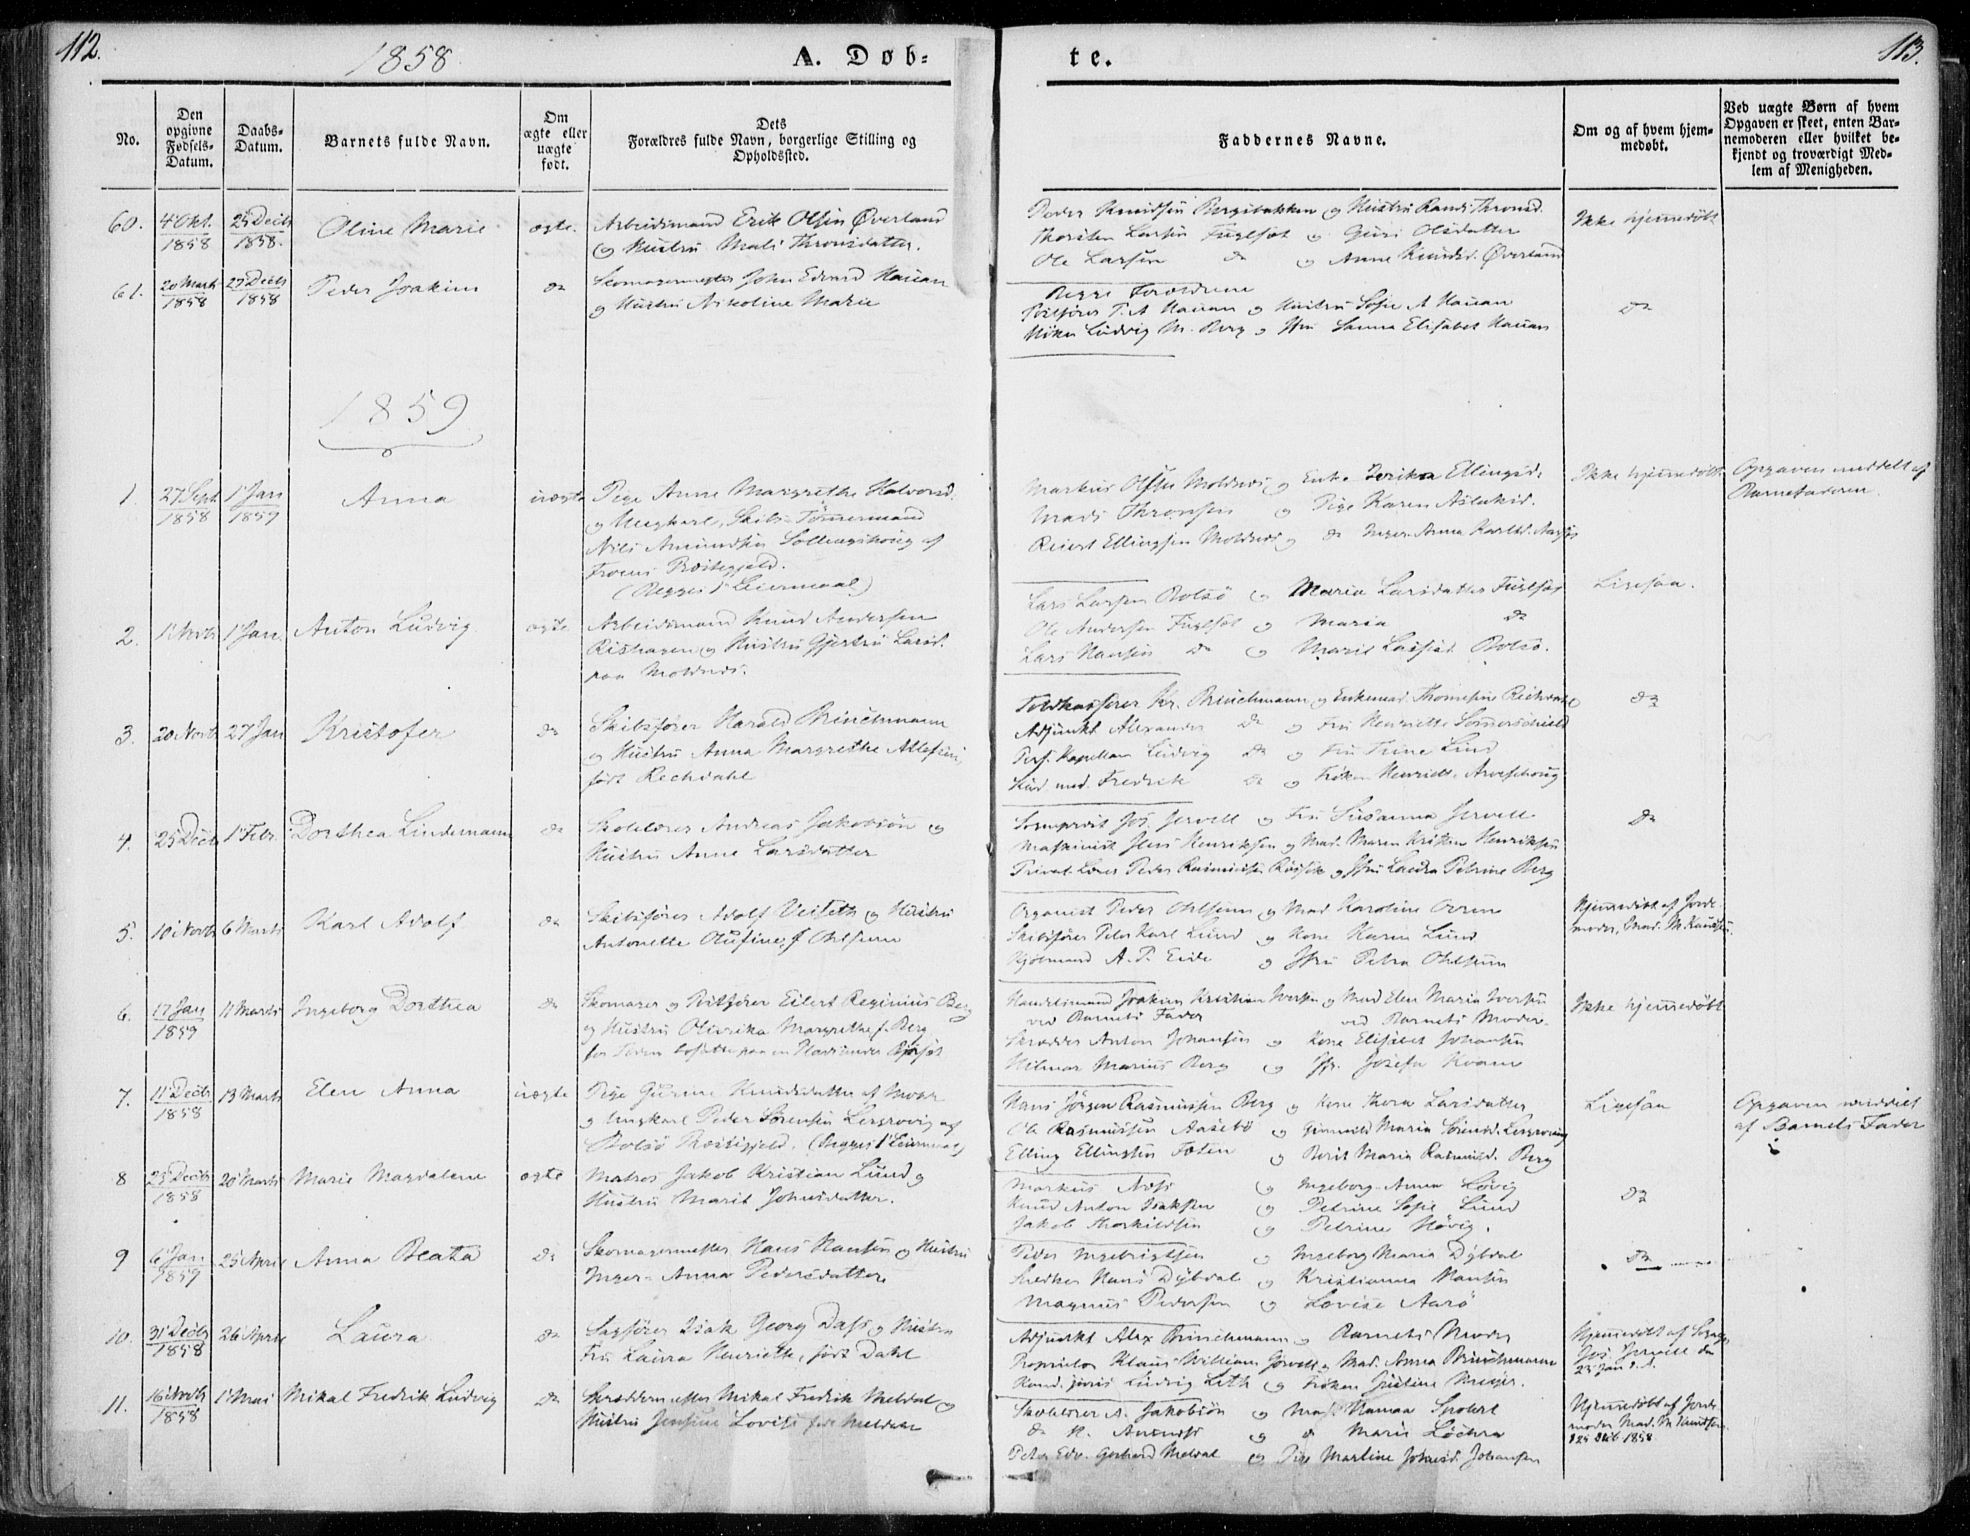 112.
1858
A. Døb-
te.
113.
No.
Den opgivne Fødsels-Datum.
Daabs-Datum.
Barnets fulde Navn.
Om ægte eller uægte født.
Dets Forældres fulde Navn, borgerlige Stilling og Opholdssted.
Faddernes Navne.
Om og af hvem hjem-medøbt.
Ved uægte Børn af hvem Opgaven er skeet, enten Bar-nemoderen eller hvilket be-kjendt og troværdigt Med-lem af Menigheden.
60. 4 Okt. 1858 25 Decbr 1858. Oline Marie ægte. Arbeidsmand Erik Olsen Øverland
og Hustru Mali Thronsdatter.
Peder Knudsen Bergsbakken og Hustru Randi Thronsd.
Thorsten Larsen Fuglset og Guri Olsdatter
Ole Larsen do og Anne Knudsd. Øverland
Ikke hjemmedøbt
61. 20 Marts 1858 27 Decbr 1858 Peder Joakim do Skomagermester John Edvard Hauan
og Hustru Nikoline Marie
Begge Forældrene
T. A Hauan og Hustru Sofie A Hauan
Ludvig M. Berg og Jfru Sanna Elisabet Hauan
do
1859
1. 27 Sept. 1858 1 Jan 1859 Anna uægte Pige Anne Margrethe Halvorsd.
og Ungkarl, Skibs-Tømmermand
Nils Amundsen af
Præstegjeld.
(Begges 1ste Leiermaal)
Markus Olsen Moldnes og Enke Ellingsd.
Mads Thronsen og Pige Karen Aslaksd.
Reiert Ellingsen Moldnes og do Inger-Anna
Ikke hjemmedøbt
Opgaven meddelt af
Barnefaderen.
2. 1 Novbr 1 Jan. Anton Ludvig ægte Arbeidsmand Knud Andersen
Rishagen og Hustru Gjertru Larsd.
paa Moldnes.
Lars Larsen Bolsø og Maria Larsdatter Fuglset
Ole Andersen Fuglset og Maria do
Lars Hansen do og Marit Larsdat Bolsø.
Ligesaa.
3. 20 Novbr 27 Jan Kristofer do Skibsfører Harald Brinchmann
og Hustru Anna Margrethe
født Rechdahl
Toldkasserer Kr. Brinchmann og
Adjunkt Alexander do og Fru Henriette Sommerschield
Pers. Kapellan Ludvig do og Fru Trine Lind
med. Fredrik do og Frøken Henriette
do
4. 25 Decbr 1 Febr. Dorthea Lindemann do Skolelærer Andreas Jakobsøn og
Hustru Anne Larsdatter
Sogneprest Jos. Jervell og Fru Susanna Jervell
Maskinist Jens Henriksen og Mad. Maren Kristen Henriksen
Privat Lærer Peder Rasmussen og Jfru Laura Petrine Berg
do
5. 10 Novbr 6 Marts Karl Adolf do Skibsfører Adolf Veiseth og Hustru
Antonette Olufine, f Ohlsenn
Organist Peder Ohlsenn og Mad Karoline
Skibsfører Peter Karl Lund og Kone Karen Lund
Kjøbmand A. P. Eide og Jfru Petra Ohlsenn
Hjemmedøbt af Jorde-
moder, Mad. M. Knudsen.
6. 17 Jan 1859 11 Marts Ingeborg Dorthea do Skomager og Eilert Reginius Berg
og Hustru Margrethe f. Berg
Handelsmand Joakim Kristian Iversen og Mad Elen Maria Iversen
ved Barnets Fader ved Barnets Moder.
Skrædder Anton Johansen og Kone Elisabet Johansen
Hilmar Marius Berg og Jfr. Josefa Kvam
Ikke hjemmedøbt
7. 11 Decbr 1858 13 Marts Elen Anna uægte Pige Knudsdatter af Moar
og Ungkarl Peder Sørensen af
Bolsø Præstegjeld. (Begges 1ste Leiermaal)
Hans Jørgen Rasmussen Berg og Kone Thora Larsdatter
Ole Rasmussen Aasebø og Maria
Elling Ellingsen og Berit Maria Rasmusd. Berg
Ligesaa
Opgaven meddelt
af Barnets Fader
8 23 Decbr 1858 20 Marts Marie Magdalene ægte Matros Jakob Kristian Lund og
Hustru Marit Johnsdatter.
Markus og Ingeborg-Anna
Knud Anton Isaksen og Petrine Sofie Lund
Jakob Thorkildsen og Petrine Høvig.
do
9 6 Jan 1859 25 April Anna Beata do Skomagermester Hans Hansen og Hustru
Inger-Anna Pedersdatter
Peder Ingebrigtsen og Ingeborg Maria Dybdal
Snedker Hans Dybdal og Kristianna Hansen
Magnus Pedersen og Lovise Aarø
do
10. 31 Decbr 1858 26 April Laura do Sagfører Isak Georg Dass og Hustru
Fru Laura Henriette, født Dahl
Adjunkt Alex Brinchmann og Barnets Moder
Proprietær Klaus William Jervell og Mad. Anna Brinchmann
Kand. juris Ludvig Leth og Frøken Justine Meyer.
Hjemmedøbt af Sogpr.
Jos. Jervell den
23 Jan
11. 16 Novbr 1858 1 Mai Mikal Fredrik Ludvig do Skræddermester Mikal Fredrik Meldal og
Hustru Jensine Lovise født Meldal
Skolelærer A. Jakobsøn og Hanna
do og do Maria
Peter Edv. Gerhard Meldal og Pige Martine Johansen
Hjemmedøbt af Jorde-
moder Mad. M Knudsen
25 Decb 1858